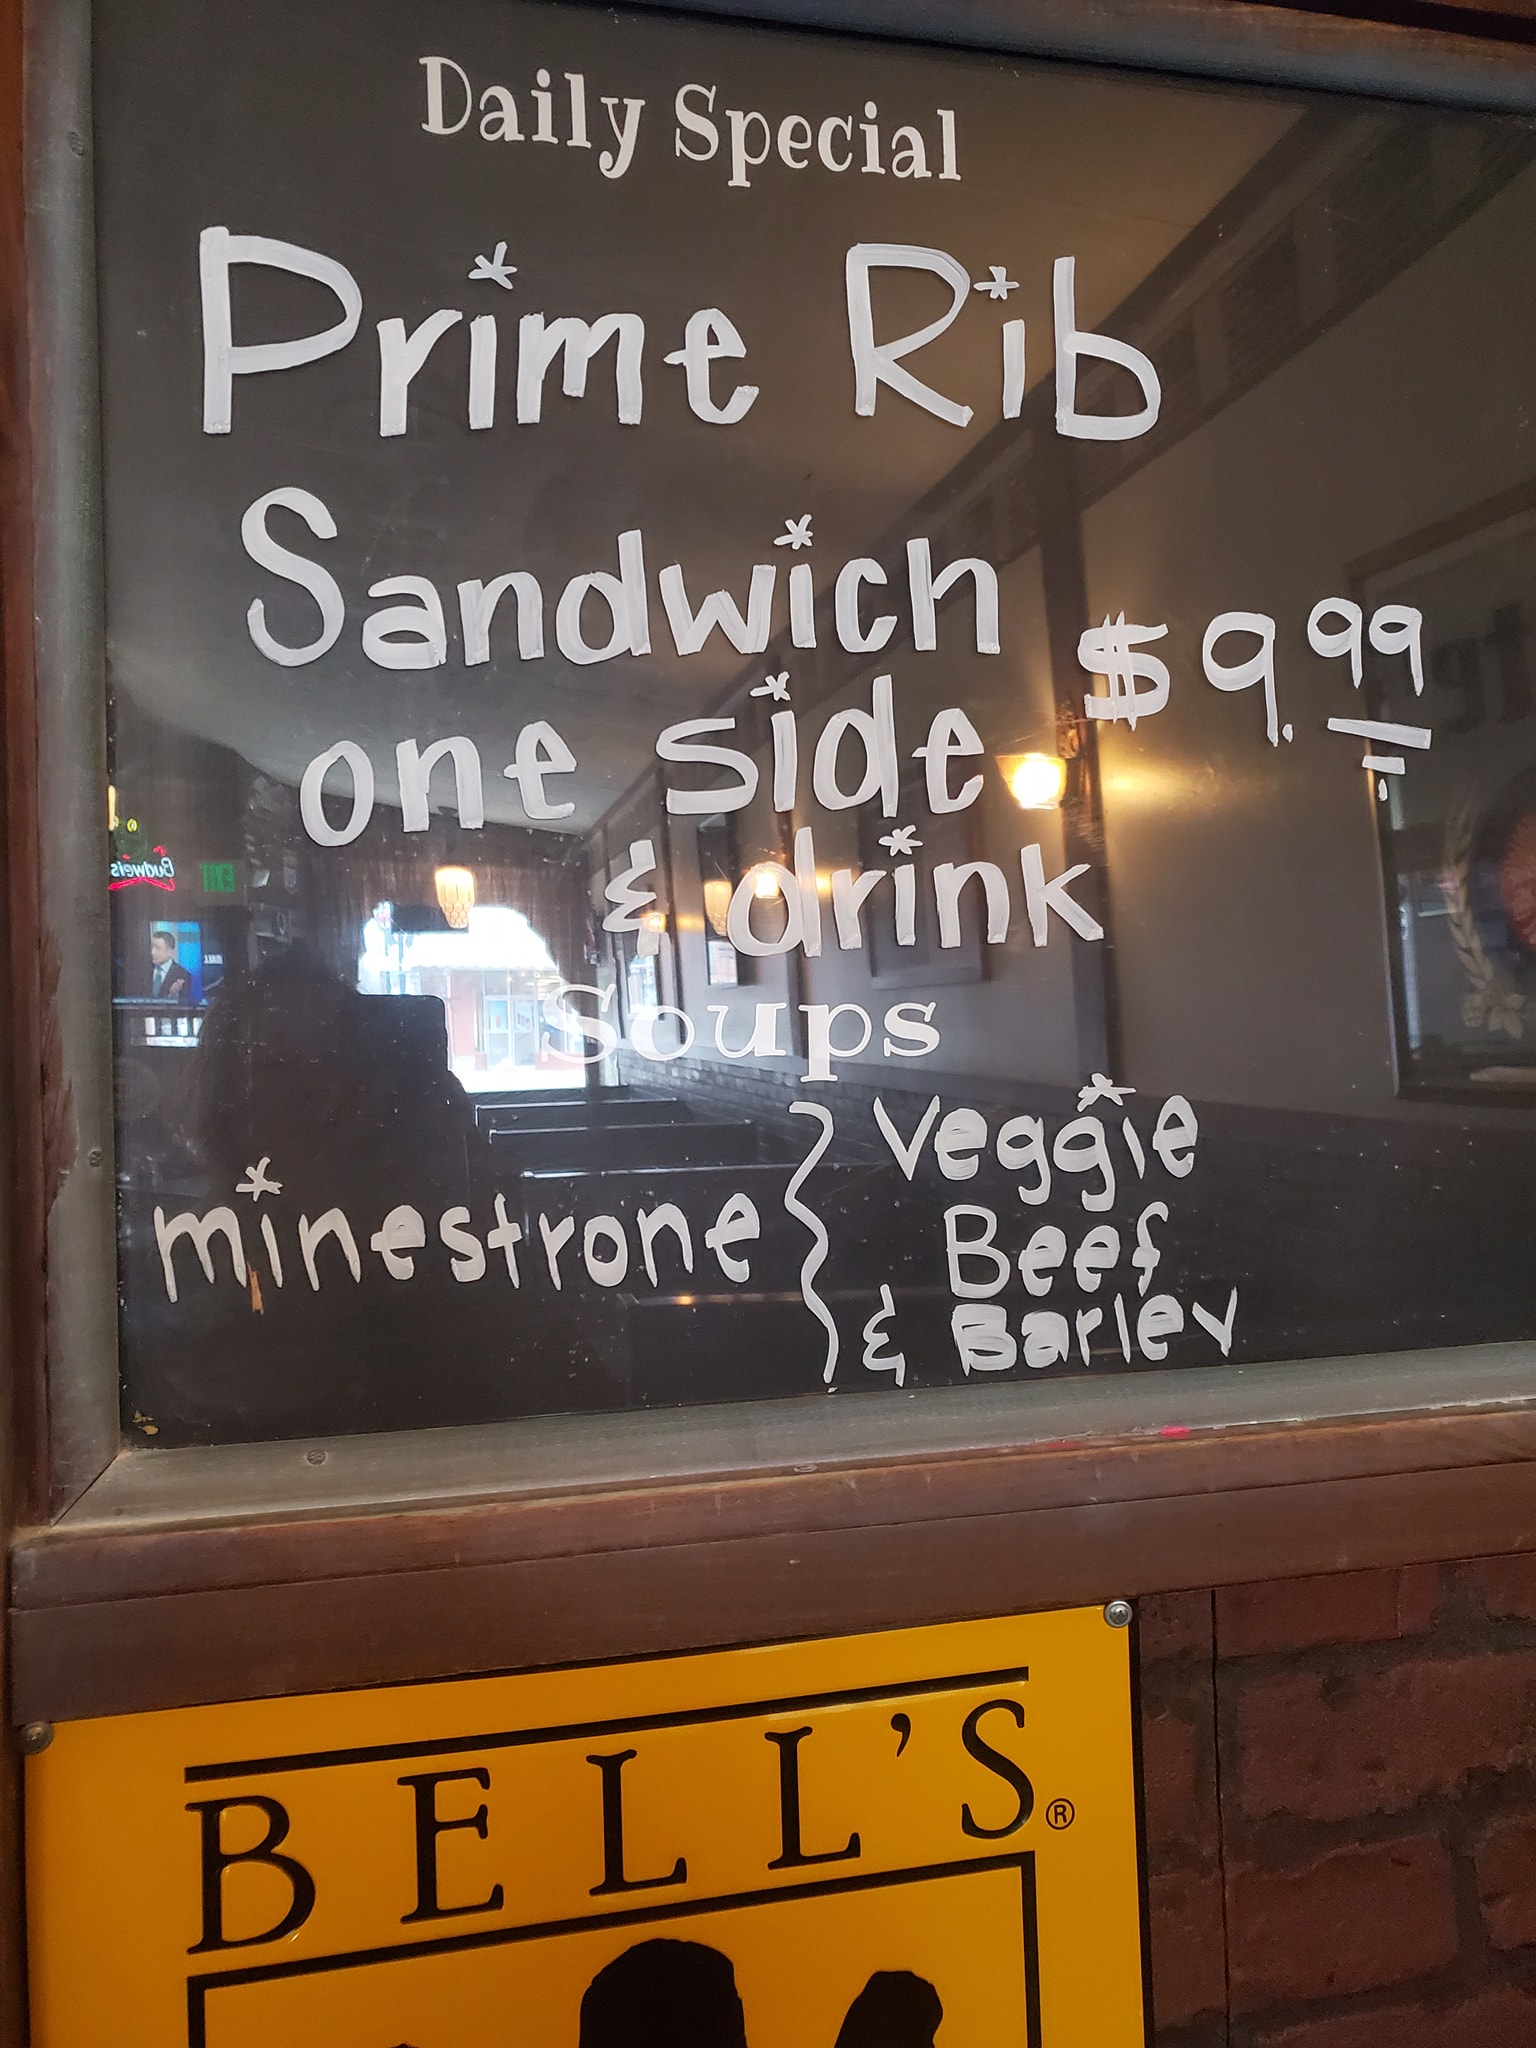 Daily Special
Prime Rib
Sandwich
$9.99
one side
& drink
Soups
minestrone } Veggie
Beef
& Barley
Budweis
EXIT
BELL'S®